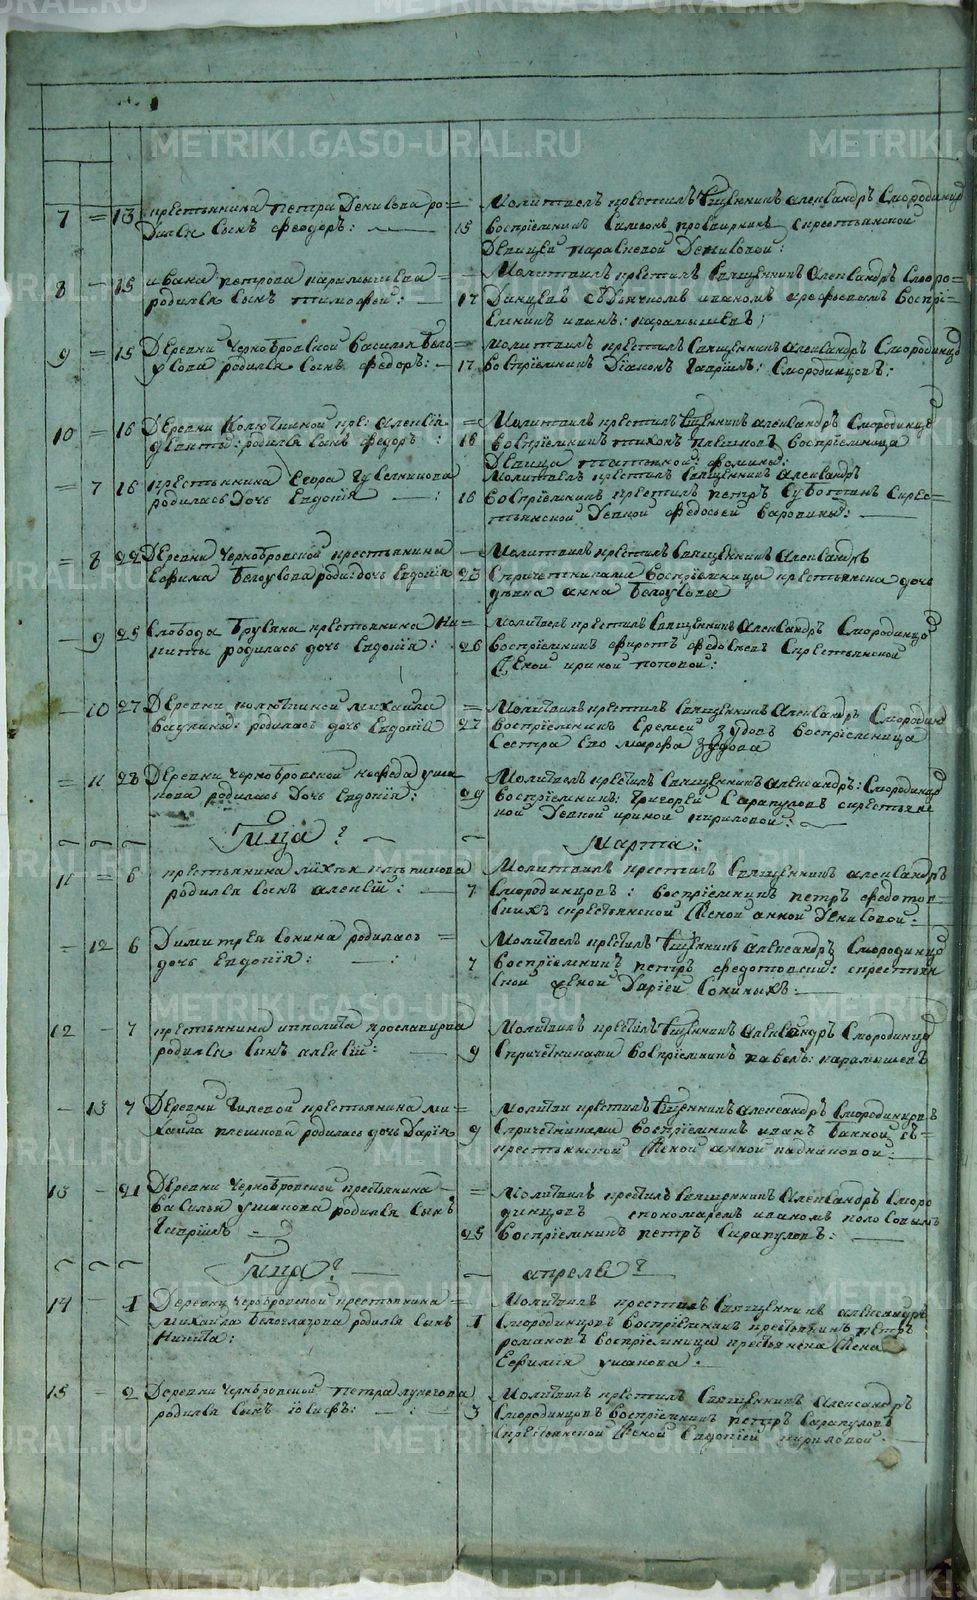 METRIKI.GASO-URAL.RU
7 = 13 крестьянина петра Денисова ро=
дился сынъ феодоръ:
Молитвилъ крестилъ Священникъ александръ Смородинцовъ
15 воспрїемникъ Симеонъ скрестьянской
Девицей параскевой Денисовой:
8 – 15 ивана петрова карамышева =
родился сынъ тимофей:
Молитвилъ крестилъ Священникъ Александръ Сморо=
17 динцовъ съ дьячкомъ иваномъ воспрї=
емникъ иванъ: карамышевъ;
9 = 15 Деревни Чернобровской василья бело
усова родился сынъ федоръ:
молитвилъ крестилъ Священникъ александръ Смородинцовъ
17 воспрїемникъ Дїаконъ гаврїилъ: Смородинцовъ:
10 = 16 Деревни Колюткиной кре: алексїя
родился сынъ федоръ:
Молитвилъ крестилъ Священникъ александръ Смородинцовъ
18 воспрїемникъ тихонъ плешковъ воспрїемница
Девица татьяной: фоминыхъ:
– 7 16 крестьянина Егора
родилась Дочь Евдокїя
Молитвилъ крестилъ Священникъ Александръ
18 воспрїемникъ крестилъ петръ Суботинъ скрес=
тьянской Женой федосьей
= 8 22 Деревни Чернобровской крестьянина
Ефима Белоусова роди: дочь Евдокїя
Молитвилъ крестилъ Священникъ Александръ
23 спричетниками воспрїемница крестьянска дочь
девка анна Белоусова
– 9 25 Слобода Брусяна крестьянина Ни=
киты родилась дочь Евдокїя:
молитвилъ крестилъ Священникъ Александръ Смородинцовъ
26 воспрїемникъ федосѣевъ скрестьянской
Женой ириной поповой:
– 10 27 Деревни колюткиной михайла
ваулиныхъ родилась дочь Евдокїя
Молитвилъ крестилъ Священникъ Александръ Смородин
27 воспрїемникъ Еремей Зудовъ воспрїемница
Сестра Его марфа Зудова
= 11 28 Деревни Чернобровской нефеда уша
кова родилась дочь Евдокїя:
Молитвилъ крестилъ Священникъ александръ: Смородинцовъ
29 воспрїемникъ: Григорей Сарапуловъ скрестьян
кой Женой ириной кириловой:
Мца Марта:
11 = 6 крестьянина
родился сынъ алексїй:
Молитвилъ крестилъ Священникъ александръ
7 Смородинцовъ: воспрїемникъ петръ федотов
скихъ скрестьянской Женой анной Денисовой.
= 12 6 Димитрея Сокина родилась
дочь Евдокїя:
Молитвилъ крестилъ Священникъ александръ Смородинцовъ
7 воспрїемникъ петръ федотовски: скрестьян
ской женой дарїей Сокиныхъ:
12 – 7 крестьянина ипполита
родился сынъ алексїй:
Молитвилъ крестилъ Священникъ александръ Смородинцовъ
9 спричетниками воспрїемникъ павелъ: карамышевъ
– 13 7 Деревни Гилевой крестьянина ми=
хайла плешкова родилась дочь дарїя
Молитви крестилъ Священникъ александръ Смородинцовъ
9 спричетниками воспрїемникъ иванъ Банной съ=
крестьянской Женой анной
13 – 21 Деревни Чернобровской крестьянина
василья ушакова родился сынъ
гаврїилъ
Молитвилъ крестилъ Священникъ Александръ Сморо
динцовъ спономаремъ иваномъ колосовымъ
25 воспрїемникъ петръ Сарапуловъ:
Мца апреля
14 – 1 Деревни Чернобровской крестьянина
михаила Белоглазова родился сынъ
Никита:
Молитвилъ крестилъ Священникъ александръ
1 Смородинцовъ воспрїемникъ крестьянинъ петръ
романовъ воспрїемница крестьянска Жена
Ефимия ушакова.
15 – 2 Деревни Чернобровской петра лунегова
родился сынъ їосифъ:
Молитвилъ крестилъ Священникъ Александръ
3 Смородинцовъ воспрїемникъ петръ Сарапуловъ
скрестьянской Женой Евдокїей кириловой.